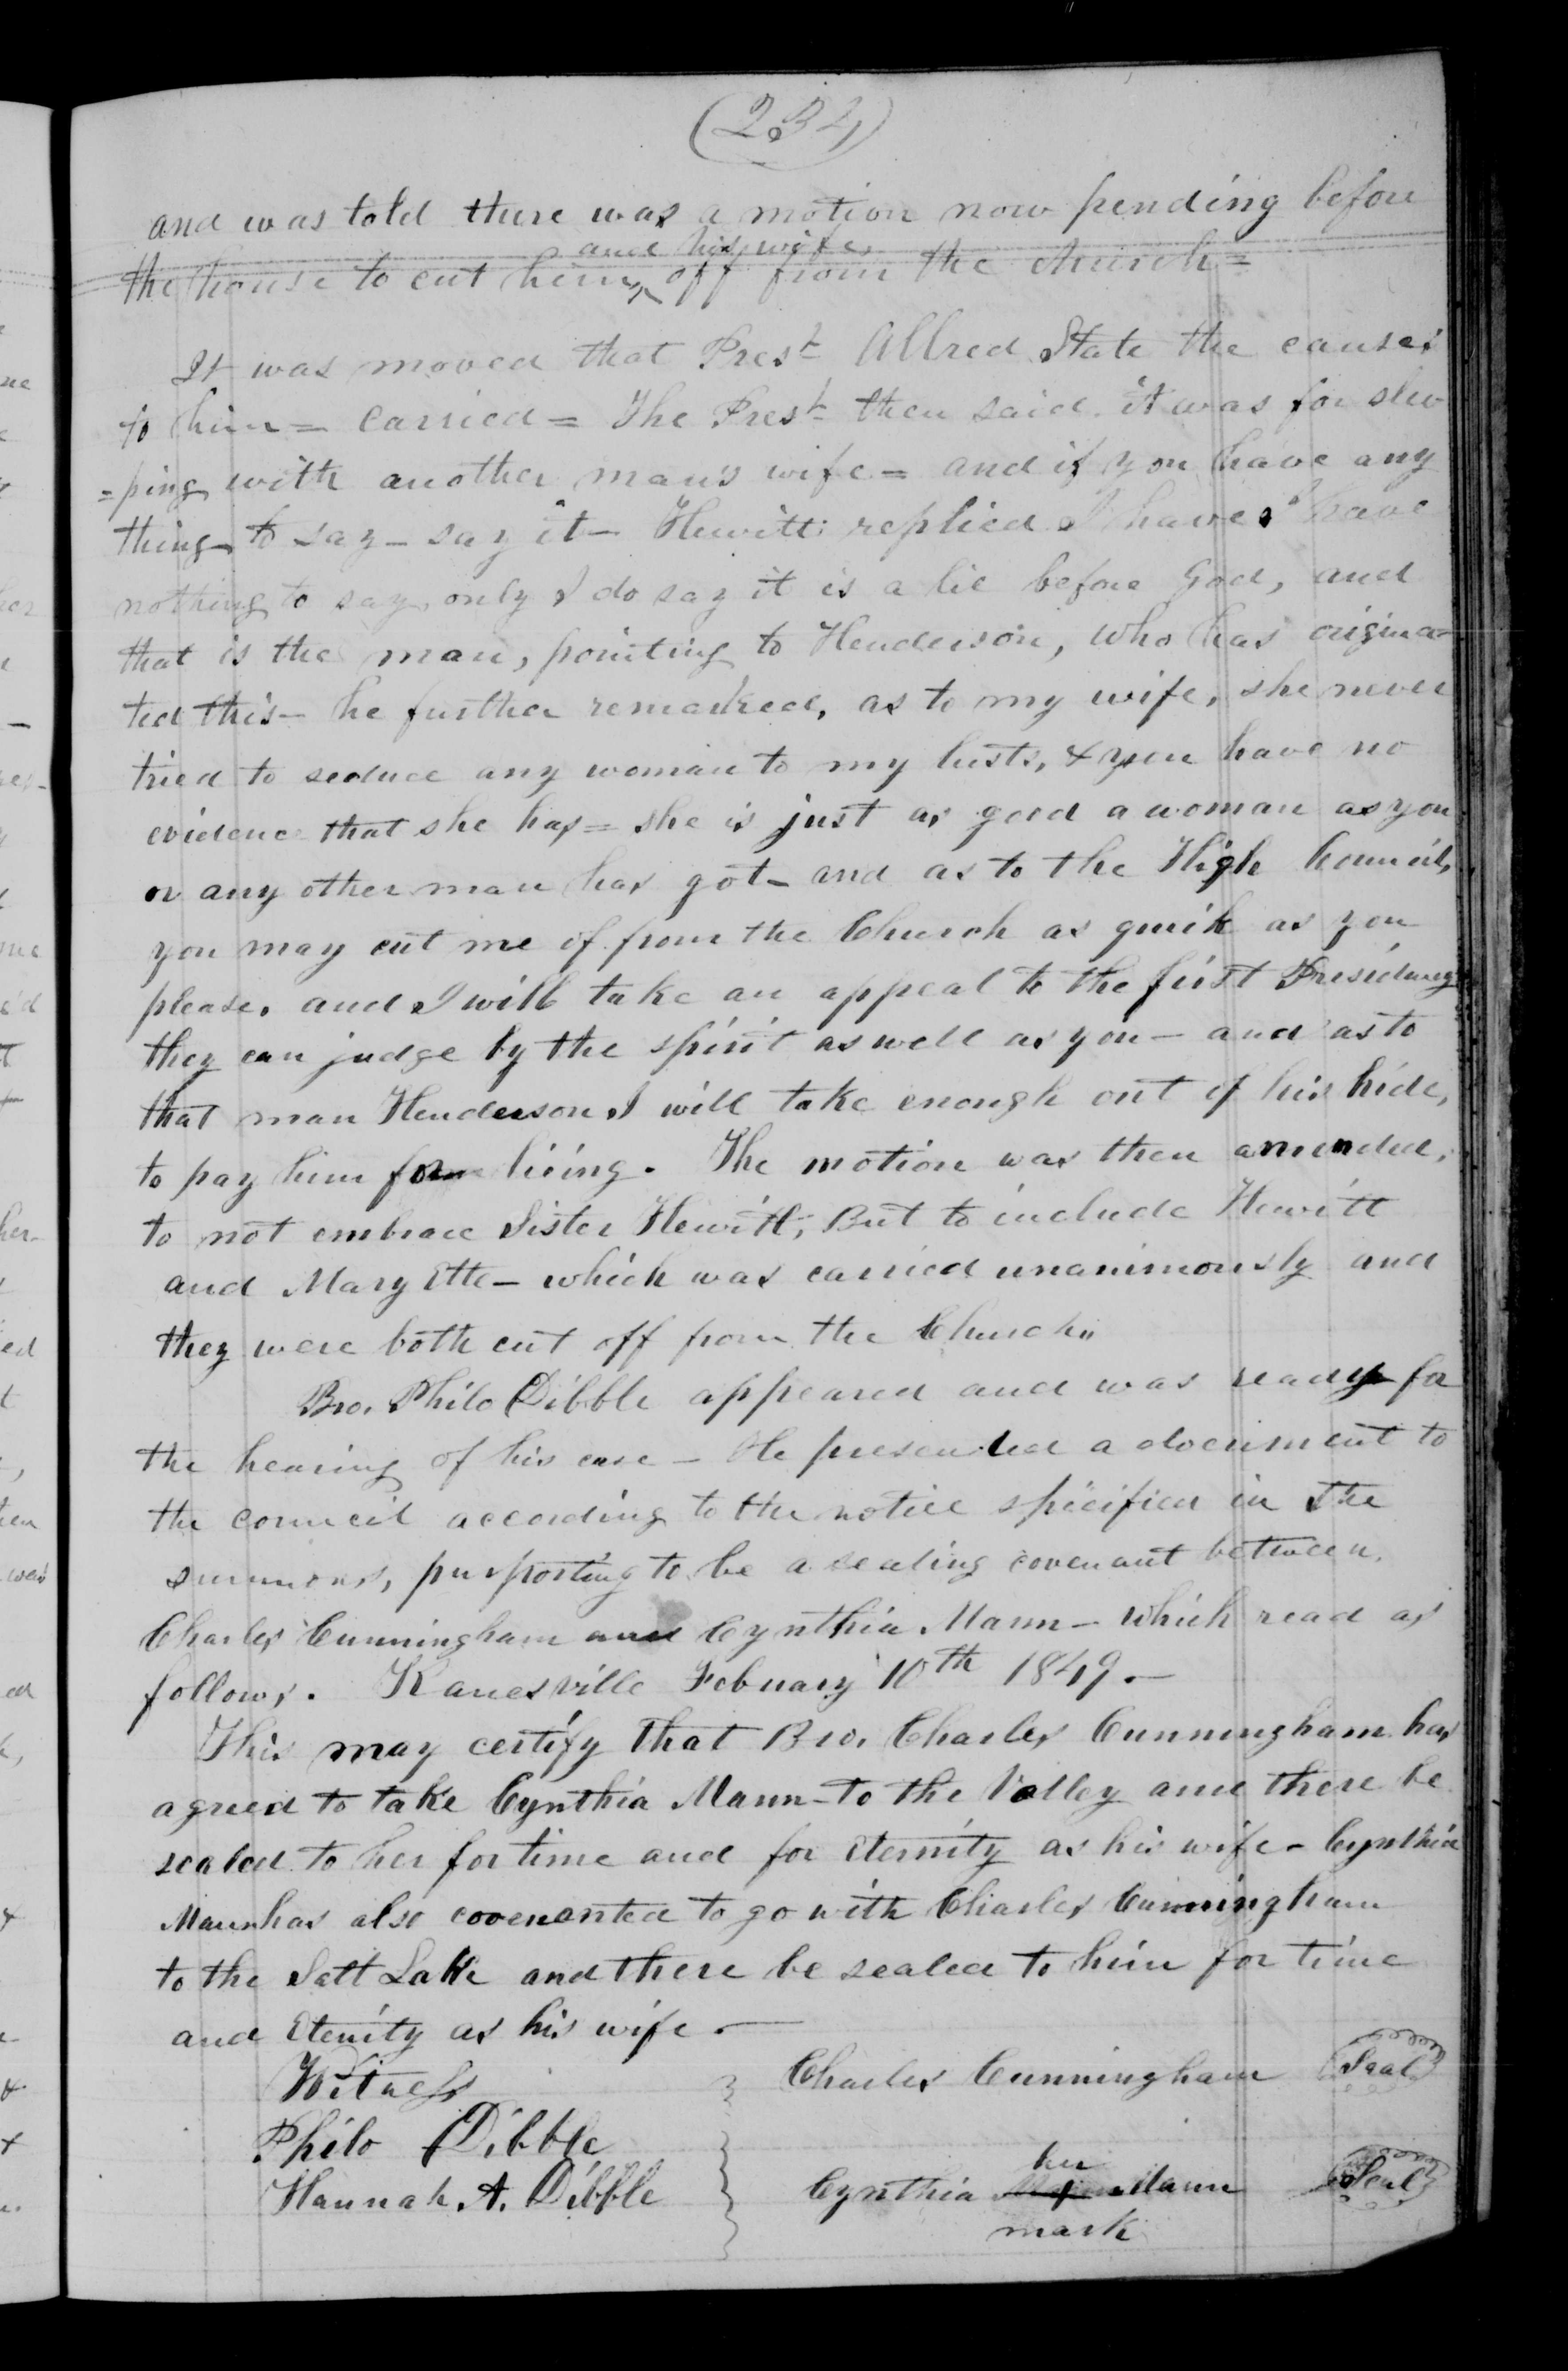 (234)
and was told there was a motion now pending before
and his wife
the house to cut him ^ off from the church=
It was moved that Prest Allred State the causes
to him = carried = The Prest then said it was for slee
=ping with another man's wife = and if you have any
thing to say - say it - Hewitt replied I have have
nothing to say, only I do say it is a lie before God, and
that is the man, pointing to Henderson, who has origina=
ted this - he further remarked, as to my wife, she never
tried to seduce any woman to my lusts, & you have no
evidence that she has = she is just as good a woman as you
or any other man has got - and as to the High Council,
you may cut me of from the Church as quick as you
please, and I will take an appeal to the first Presidency
they can judge by the spirit as well as you - and as to
that man Henderson I will take enough out of his hide,
to pay him for living. The motion was then amended,
to not embrace Sister Hewitt; But to include Hewitt
and Mary Ette - which was carried unanimously and
they were both cut off from the Church.
Bro. Philo Dibble appeared and was ready for
the hearing of his case - He presented a document to
the council according to the notice specified in the
summons, purporting to be a sealing covenant between
Charles Cunningham and Cynthia Mann - which read as
follows. Kanesville Febuary 10th 1849. -
This may certify that Bro. Charles Cunningham has
agreed to take Cynthia Mann - to the Valley and there be
sealed to her for time and for Eternity as his wife - Cynthia
Mann has also covenanted to go with Charles Cunningham
to the Salt Lake and there be sealed to him for time
and Etenity as his wife. -
Witness
Charles Cunningham Seal
Philo Dibble
Hannah A. Dibble
her
Cynthia Mann Seal
mark